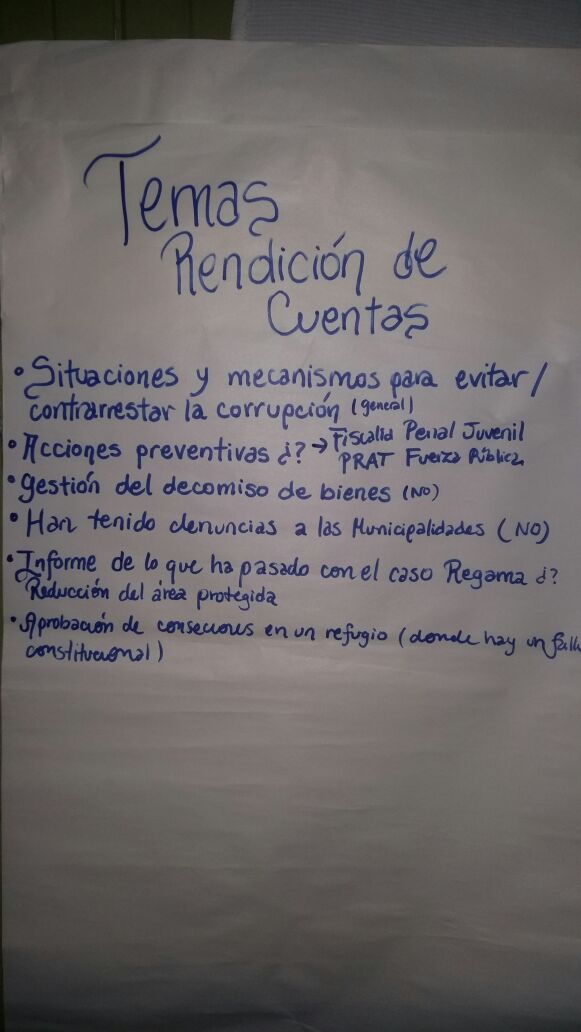 Temas
Rendición de
Cuentas
• Situaciones y mecanismos para evitar/
contrarrestar la corrupción (general)
• Acciones preventivas ¿? → Fiscalía Penal Juvenil
PRAT Fuerza Pública
• Gestión del decomiso de bienes (NO)
• Han tenido denuncias a las Municipalidades (NO)
• Informe de lo que ha pasado con el caso Regama ¿?
Reducción del área protegida
• Aprobación de en un refugio (donde hay un
constitucional)